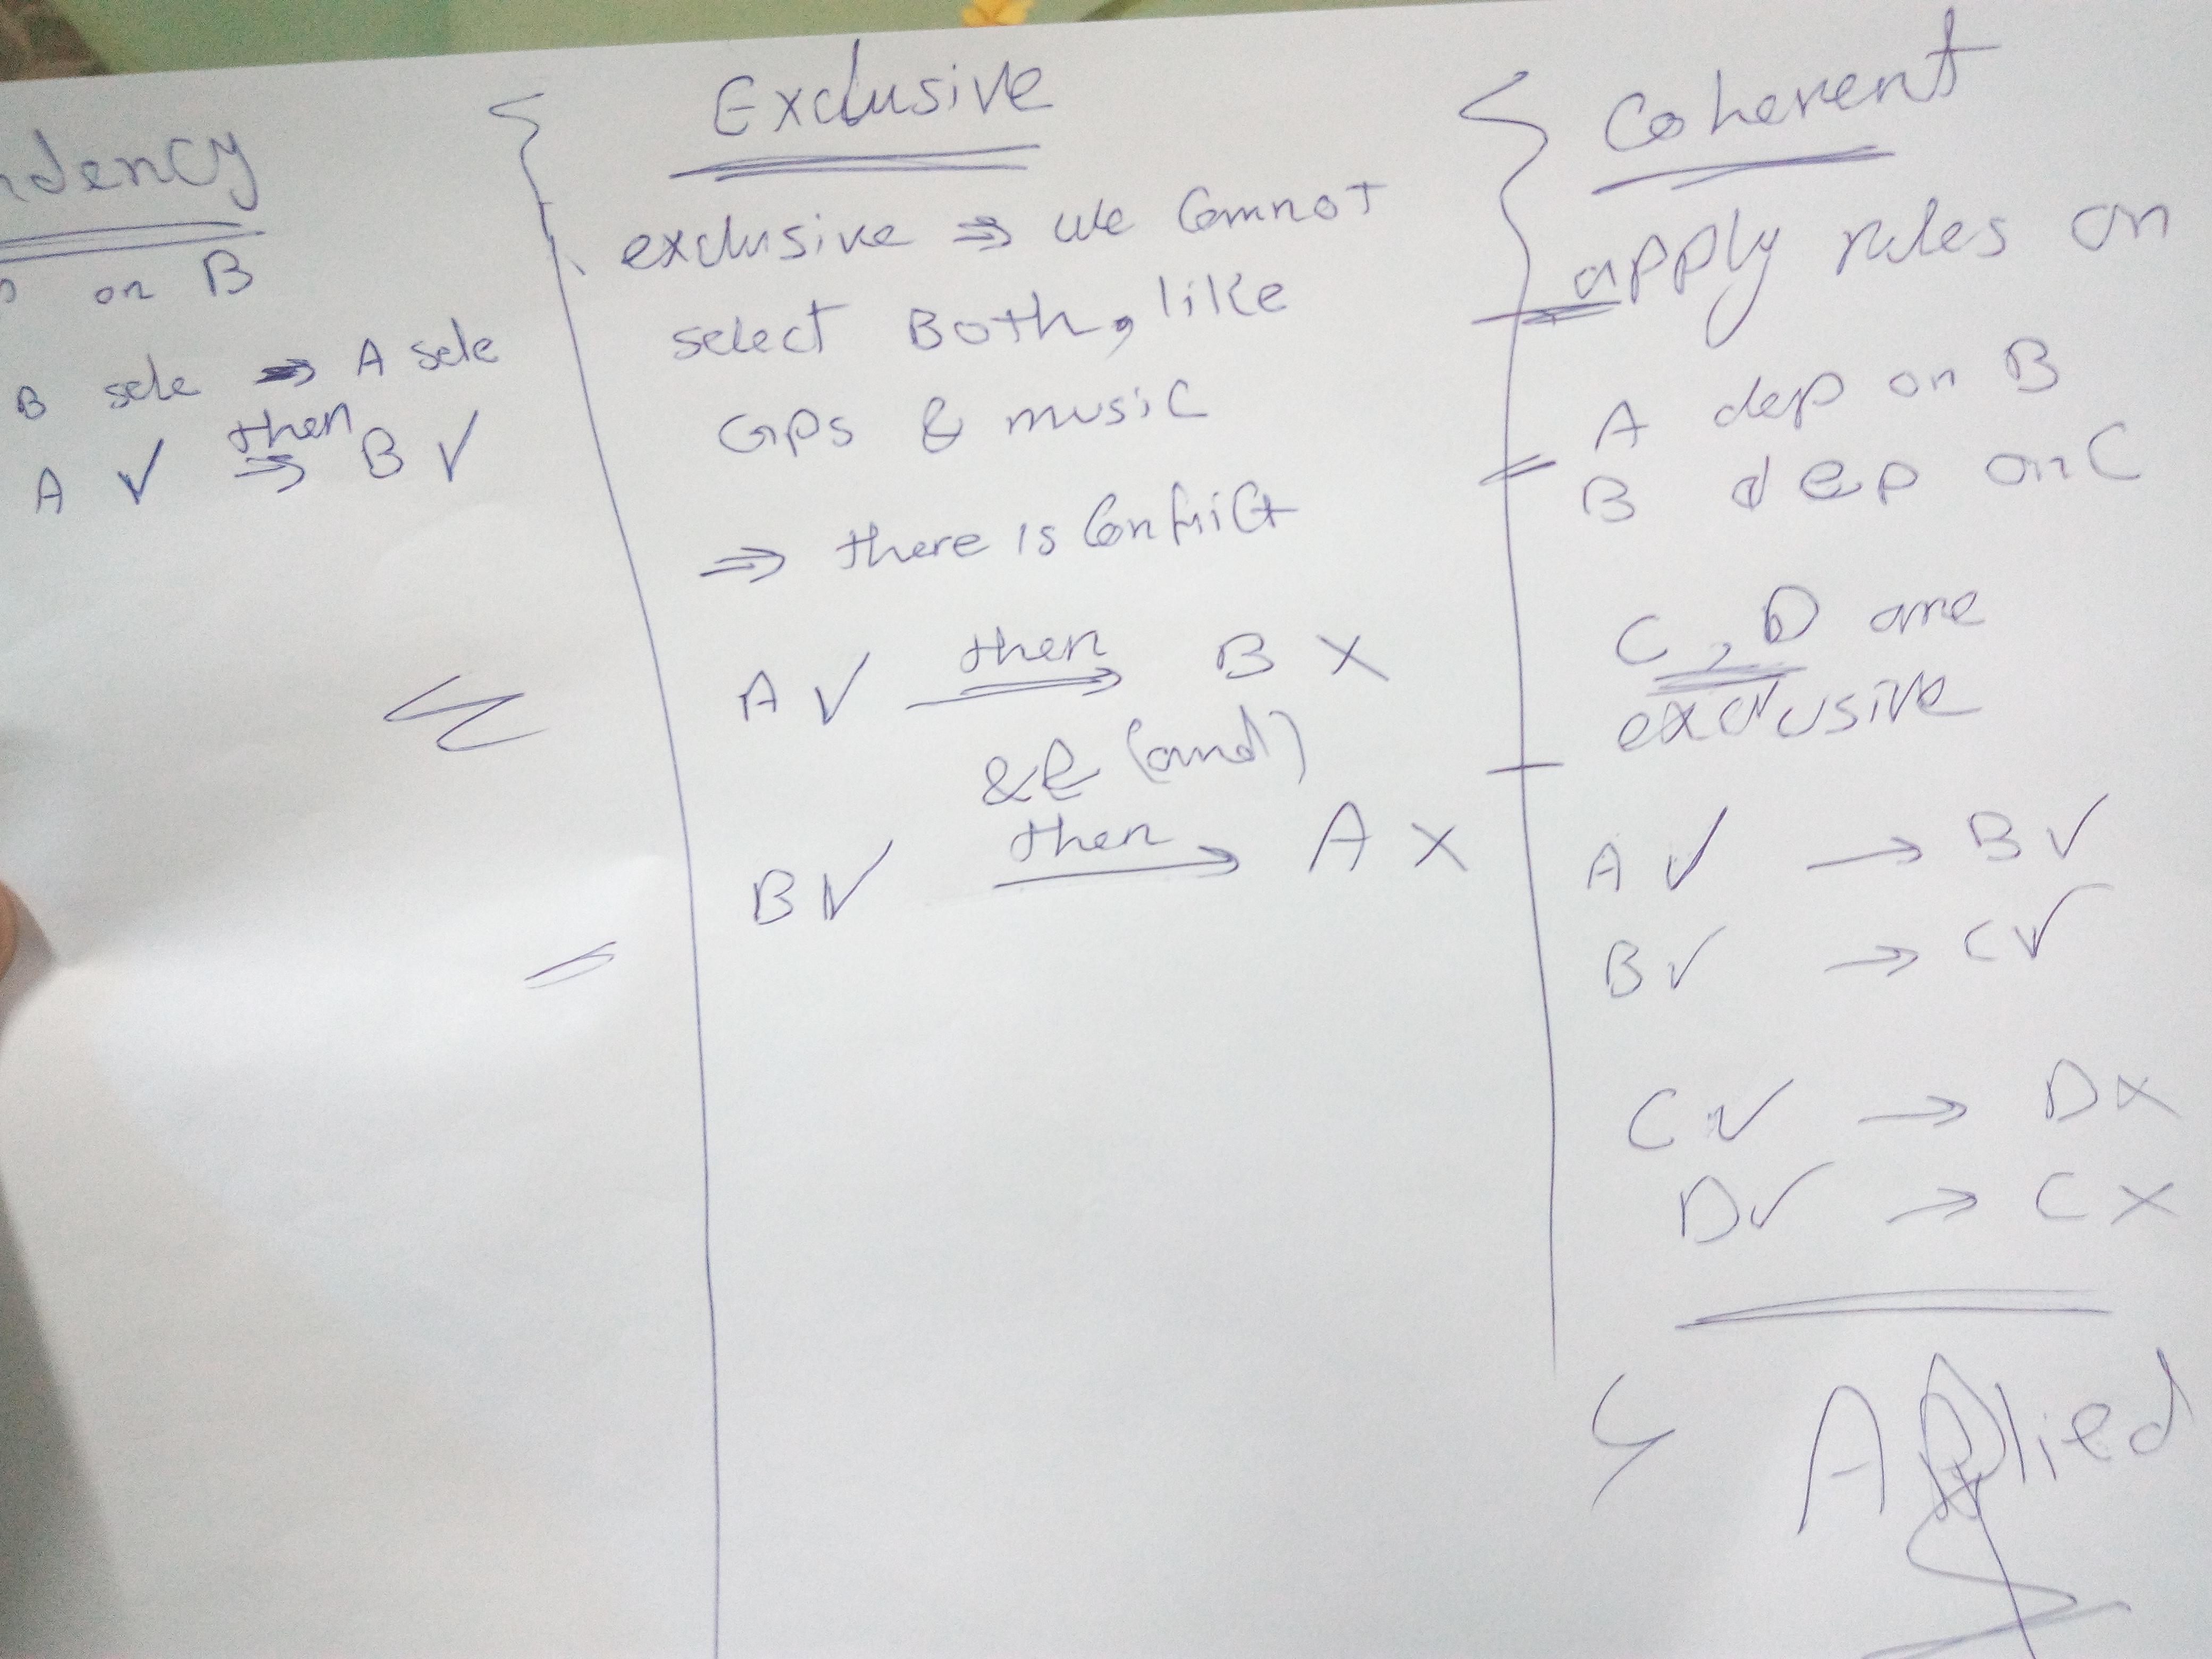 ndency
on B
B sele ⇒ A sele
A ✓ then ⇒ B ✓
Exclusive
exclusive ⇒ we cannot
select Both, like
GPS & music
⇒ there is Conflict
A ✓ then → B X
& (and)
B ✓ then → A X
Coherent
apply rules on
A dep on B
B dep on C
C, D are
exclusive
A ✓ → B ✓
B ✓ → C ✓
C ✓ → D X
D ✓ → C X
Applied